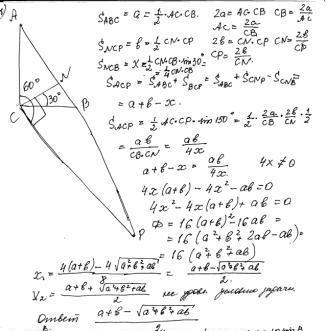 A
60°
30°
N
C
B
P
S_ABC = a = 1/2 · AC·CB. 2a = AC·CB CB = 2a/AC
AC = 2a/CB
S_NCP = b = 1/2 CN·CP 2b = CN·CP CN = 2b/CP
CP = 2b/CN.
S_NCB = x = 1/2 CN·CB·sin30° = 1/4 CN·CB
S_ACP = S_ABC + S_BCP = S_ABC + S_CNP - S_CNB =
= a+b-x.
S_ACP = 1/2 AC·CP·sin150° = 1/2 · 2a/CB · 2b/CN · 1/2
= ab/CB·CN = ab/4x
a+b-x = ab/4x 4x ≠ 0
4x(a+b) - 4x² - ab = 0
4x² - 4x(a+b) + ab = 0
= 16(a+b)² - 16ab =
= 16(a²+b²+2ab-ab) =
= 16(a²+b²+ab)
x₁ = 4(a+b) - 4√a²+b²+ab / 8 = a+b-√a²+b²+ab / 2.
x₂ = a+b+√a²+b²+ab / 2 не условию задачи
Ответ a+b-√a²+b²+ab / 2